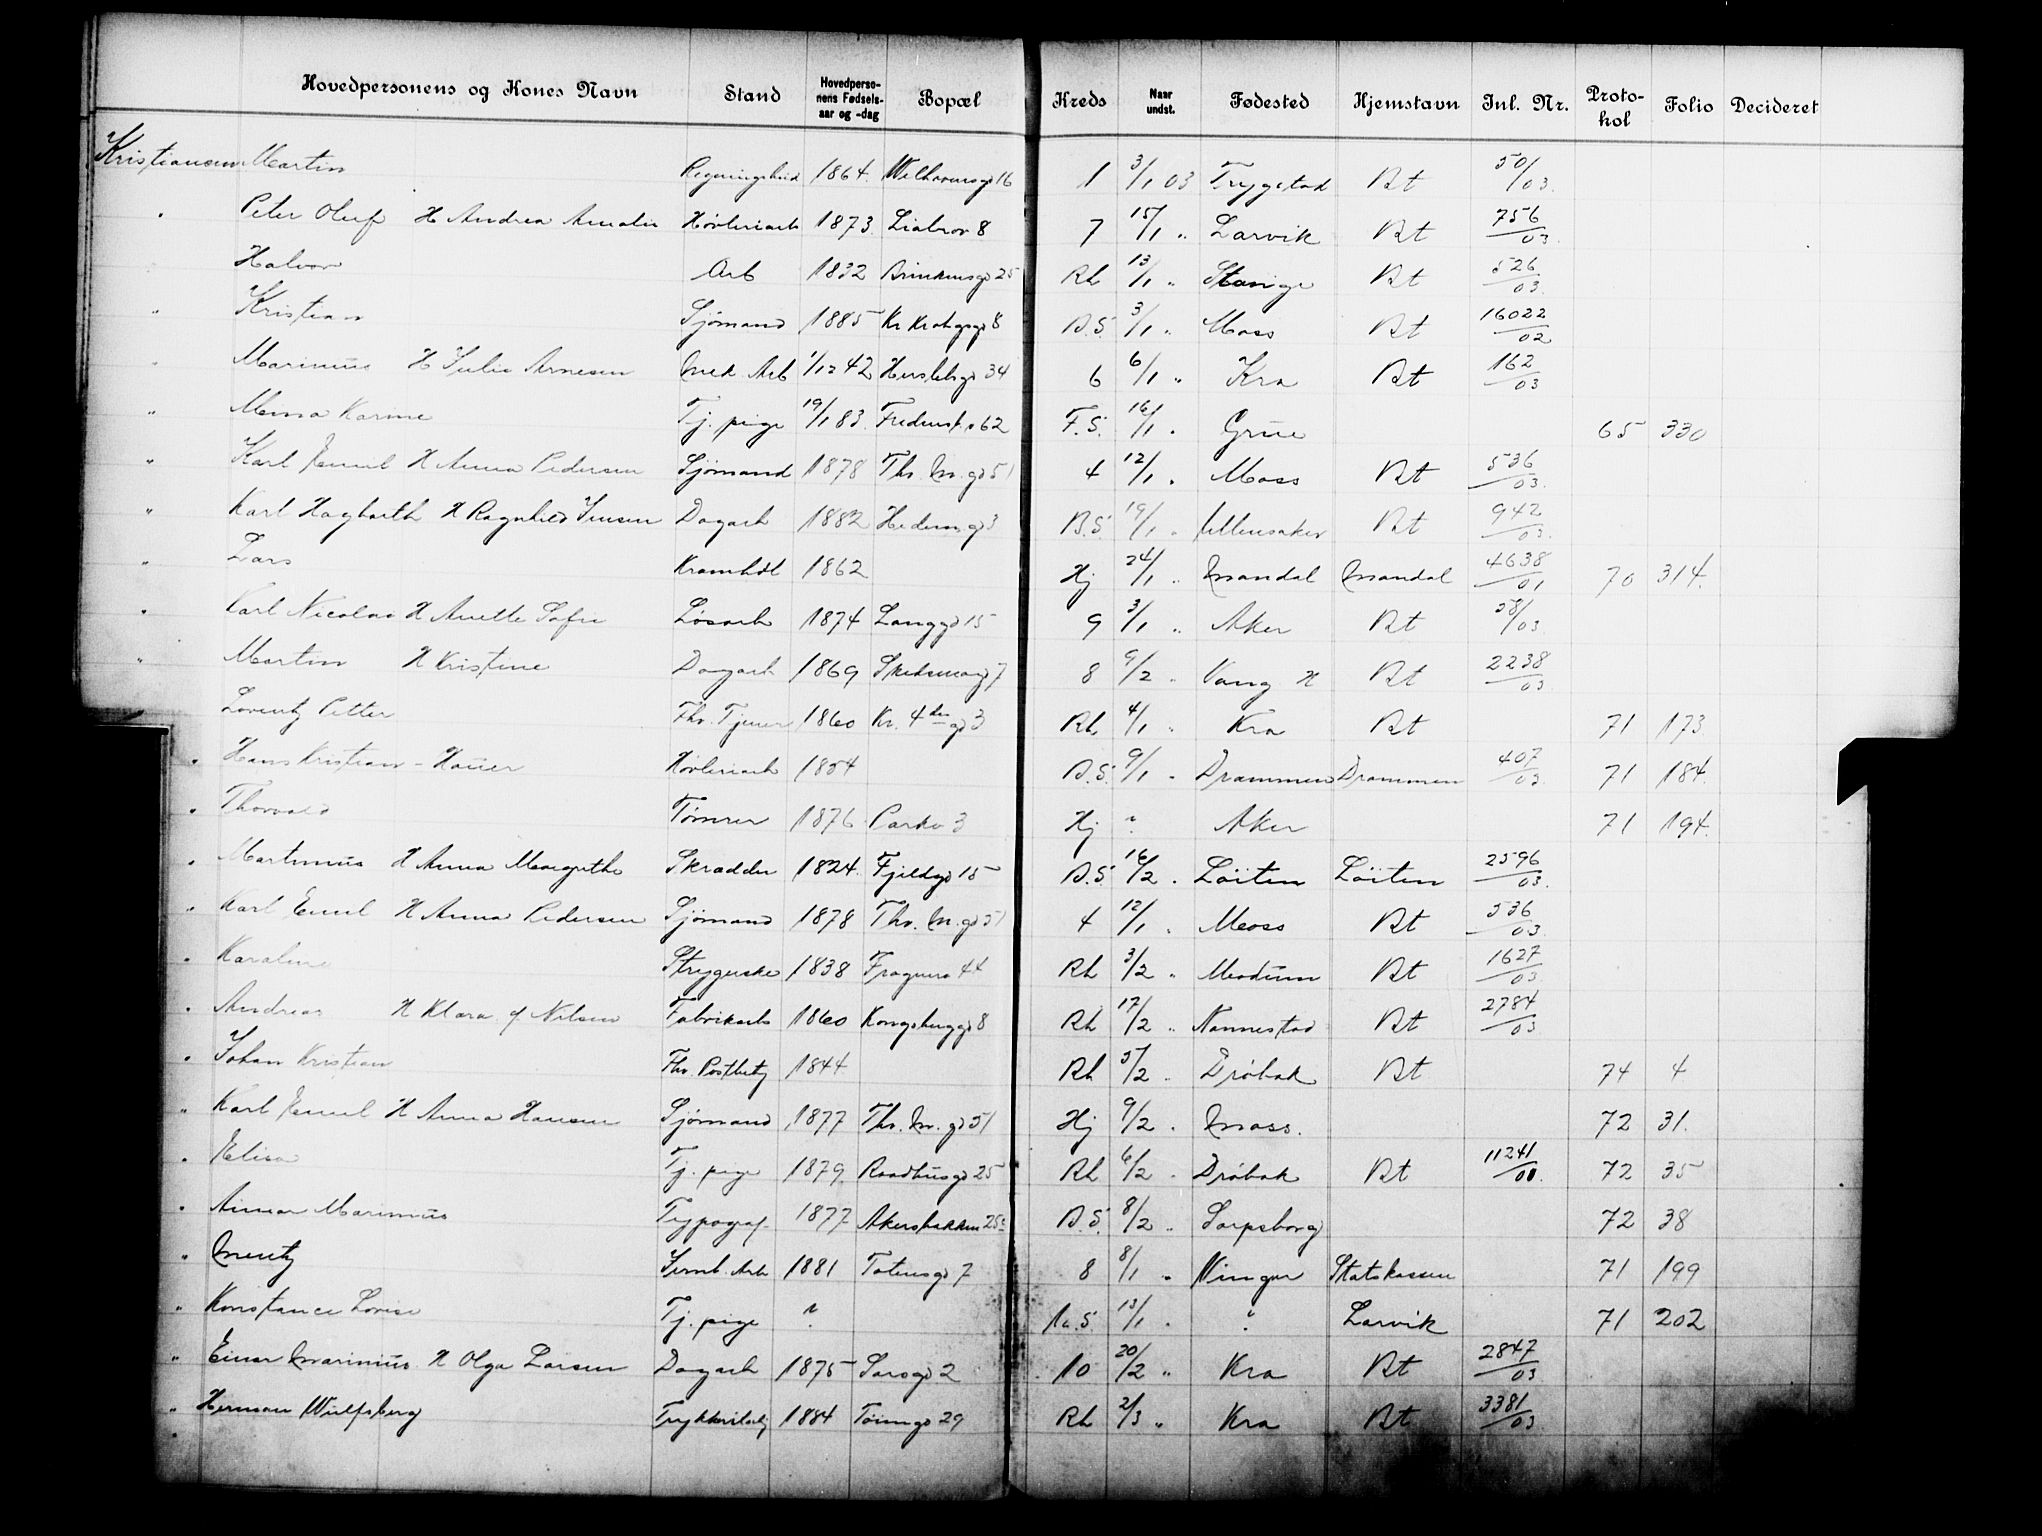 Hovedpersonens og Kones Navn Stand Hovedpersonens Fødselsaar og -dag Bopæl Kreds Naar undst. Fødested Hjemstavn Inl. Nr. Protokol Folio Decideret
Kristiansen Martin 1864 16 1 3/1 03 Trygstad Bt 50/03
" Peter Oluf H Andrea Amalie Høvleriarb 1873 Liabrov 8 7 15/1 " Larvik Bt 756/03
Halvor Arb 1832 25 Rh 13/1 " Stange Bt 526/03
" Kristian Sjømand 1885 Kr Kroghsgd 8 B.S. 3/1 " Moss Bt 16022/02
" Marinius H Julie Arnesen Med. Arb 1/12 42 Herslebsgd 34 6 6/1 " Kra Bt 162/03
" Karine Tj. pige 19/1 83 62 F.S. 16/1 " Grue 65 330
" Karl Emil H Anna Pedersen Sjømand 1878 Thv. M. gd 51 4 12/1 " Moss Bt 536/03
" Karl Hagbarth H Ragnhild Jensen Dagarb 1882 Hedemgd 3 B.S. 19/1 " Ullensaker Bt 942/03
" Lars Kramhdl 1862 Hj 24/1 " Mandal Mandal 4638/01 70 314
" Karl Nicolai H Anette Sofie Løsarb 1874 Langgd 15 9 3/1 " Aker Bt 58/03
" Martin H Kristine Dagarb 1869 Skedsmogd 7 8 9/2 " Vang H Bt 2238/03
Lorentz Petter Fhv. Tjener 1860 Kr. 4des gd 3 Rh 4/1 " Kra Bt 71 173
" Hans Kristian - Hauer Høvleriarb 1854 B.S. 9/1 " Drammen Drammen 407/03 71 184
" Thorvald Tømrer 1876 Parkv 3 Hj ? Aker 71 194
" Martinius H Anna Margrethe Skrædder 1824 Fjeldgd 15 B.S. 16/2 " Löiten Löiten 2596/03
" Karl Emil H Anna Pedersen Sjømand 1878 Thv. M. gd 51 4 12/1 " Moss Bt 536/03
" Karoline Strygerske 1838 Frognerv 44 Rh 3/2 " Modum Bt 1627/03
" Andreas H Klara f Nilsen Fabrikarb 1860 Kongsberggd 8 Rh 17/2 " Nannestad Bt 2784/03
" Johan Kristian Fhv. Postbetj 1844 Rh 5/2 " Drøbak Bt 74 4
" Karl Emil H Anna Hansen Sjømand 1877 Thv. M. gd 51 Hj 9/2 " Moss 72 31
" Elisa Tj. pige 1879 Raadhusgd 25 Rh 6/2 " Drøbak Bt 11241/00 72 35
" Marinius Typograf 1877 Akersbakken 25 B.S. 8/2 " Sarpsborg 72 38
" Mentz Jernb. Arb 1881 Totensgd 7 8 8/1 " Vinger Statskassen 71 199
" Konstance Lovise Tj. pige ? 13/1 " ? Larvik 71 202
" Einar Marinius H Olga Larsen Dagarb 1875 Sarsgd 2 10 20/2 " Kra Bt 2847/03
" Herman Wulfsberg 1884 Tøiengd 29 Rh 2/3 " Kra Bt 3381/03
"